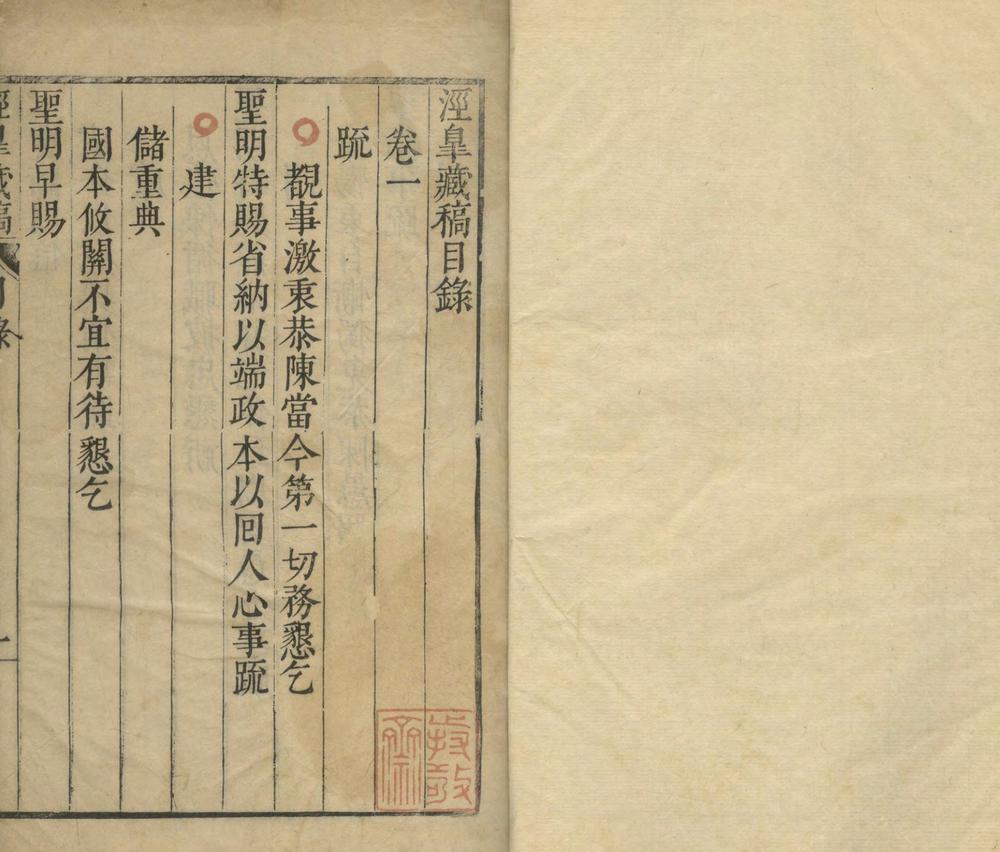 涇臯藏稿目錄
卷一
䟽
覩事激衷恭陳當今第一切務懇乞
聖明特賜省納以端政本以囘人心事䟽
建
儲重典
國本攸關不宜有待懇乞
聖明早賜